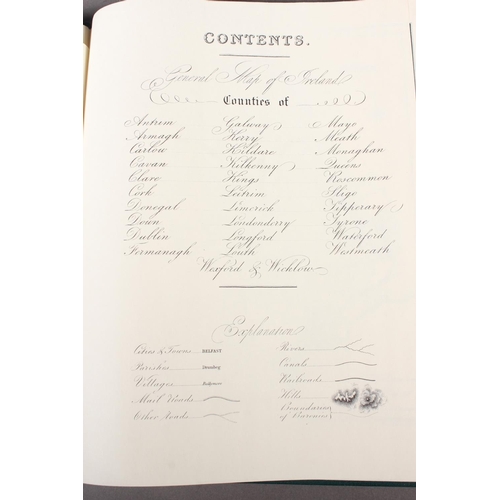 CONTENTS.
General Map of Ireland
Counties of
Antrim Galway Mayo
Armagh Kerry Meath
Carlow Kildare Monaghan
Cavan Kilkenny Queens
Clare Kings Roscommon
Cork Leitrim Sligo
Donegal Limerick Tipperary
Down Londonderry Tyrone
Dublin Longford Waterford
Fermanagh Louth Westmeath
Wexford & Wicklow
Explanation
Cities & Towns BELFAST
Parishes
Villages
Mail Roads
Other Roads
Rivers
Canals
Railroads
Hills
Boundaries
of Baronies